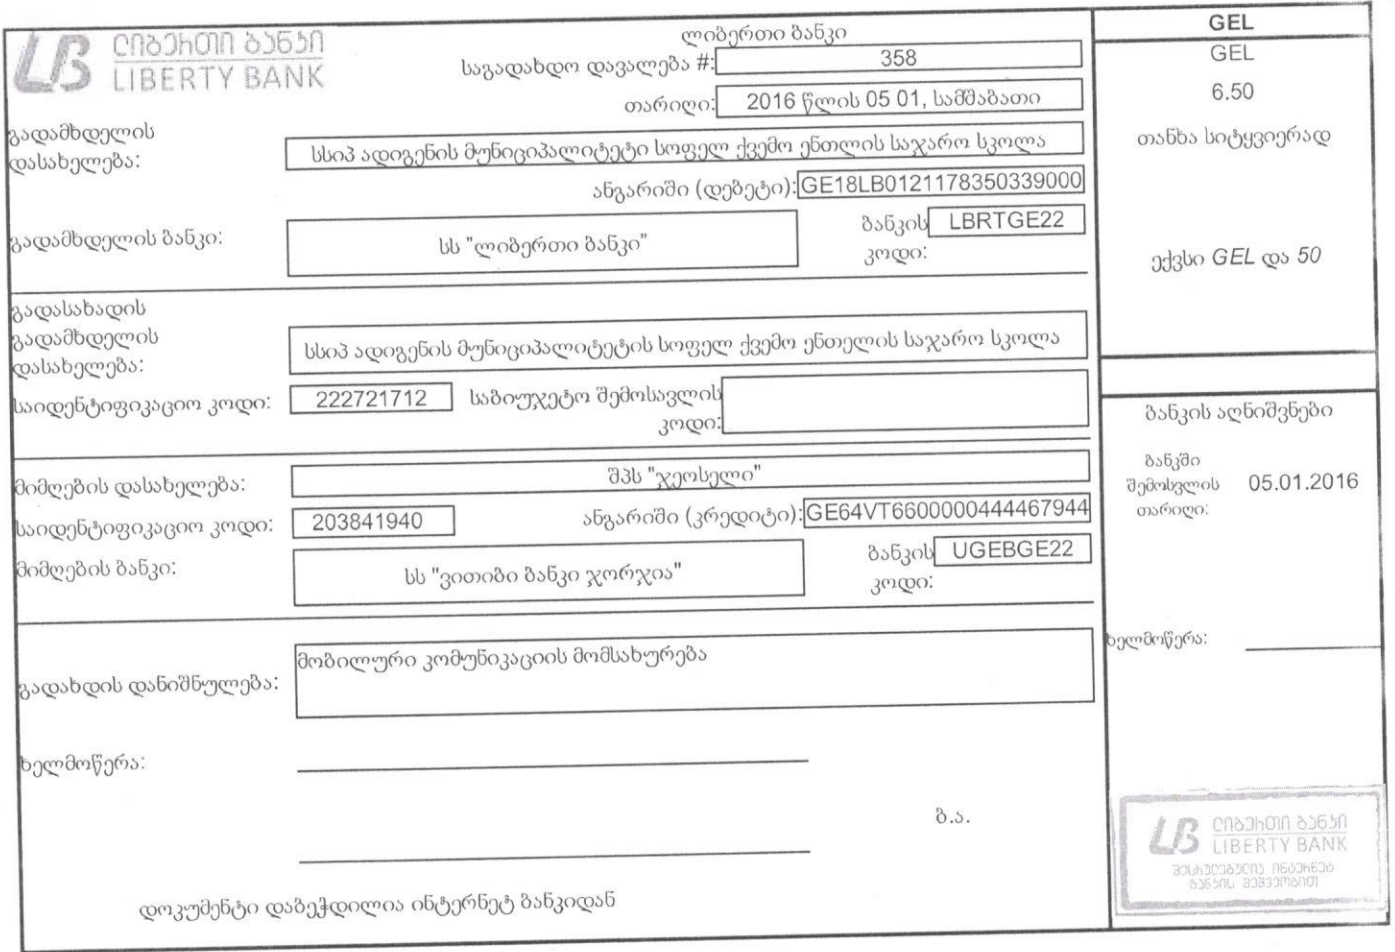 ლიბერთი ბანკი
LIBERTY BANK
ლიბერთი ბანკი
საგადახდო დავალება #: 358
თარიღი: 2016 წლის 05 01, სამშაბათი
გადამხდელის
დასახელება:
სსიპ ადიგენის მუნიციპალიტეტი სოფელ ქვემო ენთლის საჯარო სკოლა
ანგარიში (დებეტი): GE18LB0121178350339000
გადამხდელის ბანკი: სს "ლიბერთი ბანკი" ბანკის LBRTGE22
კოდი:
გადასახადის
გადამხდელის
დასახელება:
სსიპ ადიგენის მუნიციპალიტეტის სოფელ ქვემო ენთელის საჯარო სკოლა
საიდენტიფიკაციო კოდი: 222721712 საბიუჯეტო შემოსავლის
კოდი:
მიმღების დასახელება: შპს "ჯეოსელი"
საიდენტიფიკაციო კოდი: 203841940 ანგარიში (კრედიტი): GE64VT6600000444467944
მიმღების ბანკი: სს "ვითიბი ბანკი ჯორჯია" ბანკის UGEBGE22
კოდი:
მობილური კომუნიკაციის მომსახურება
გადახდის დანიშნულება:
ხელმოწერა:
ბ.ა.
დოკუმენტი დაბეჭდილია ინტერნეტ ბანკიდან
GEL
GEL
6.50
თანხა სიტყვიერად
ექვსი GEL და 50
ბანკის აღნიშვნები
ბანკში
შემოსვლის 05.01.2016
თარიღი:
ხელმოწერა:
ლიბერთი ბანკი
LIBERTY BANK
შესრულებულია ინტერნეტ
ბანკის მეშვეობით